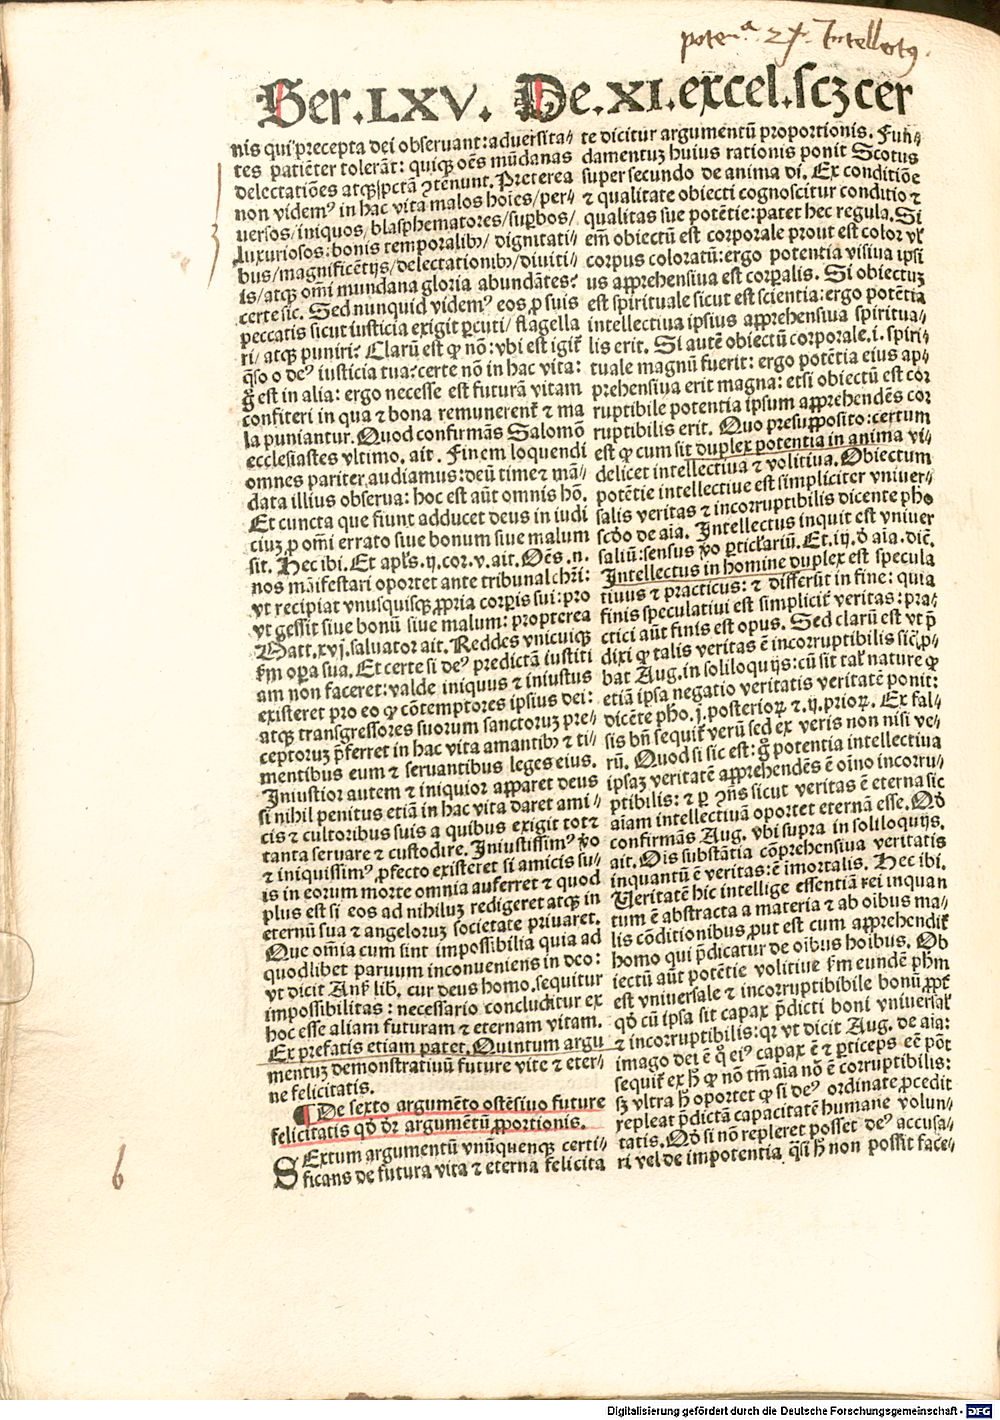 poten^a 2^x Intellectꝰ
Ser. LXV. De. XI. excel. scꝫ cer
nis qui precepta dei obseruant: aduersita-
tes patiẽter tolerãt: quiqꝫ oẽs mũdanas
delectatiões atqꝫ sꝑctã ↄtẽnunt. Preterea
non videmꝰ in hac vita malos hoĩes/ per-
uersos/ iniquos/ blasphematores/ suꝑbos/
luxuriosos: bonis temporalibꝫ/ dignitati//
bus/ magnificẽtijs/ delectationibꝫ/ diuiti//
is/ atqꝫ om̃i mundana gloria abundãtes?
certe sic. Sed nunquid videmꝰ eos ꝓ suis
peccatis sicut iusticia exigit ꝑcuti/ flagella
ri/ atqꝫ puniri? Clarũ est ꝙ nõ: vbi est igit̃
q̃so o deꝰ iusticia tua? certe nõ in hac vita:
g̊ est in alia: ergo necesse est futurã vitam
confiteri in qua ⁊ bona remunerent̃ ⁊ ma
la puniantur. Quod confirmãs Salomõ
ecclesiastes vltimo. ait. Finem loquendi
omnes pariter audiamus: deũ time ⁊ mã//
data illius obserua: hoc est aũt omnis hõ.
Et cuncta que fiunt adducet deus in iudi
ciuꝫ ꝓ om̃i errato siue bonum siue malum
sit. Hec ibi. Et apl̃s. ij. cor. v. ait. Oẽs. n.
nos mãifestari oportet ante tribunal ch̃ri:
vt recipiat vnusquisqꝫ ꝓpria corꝑis sui: pro
vt gessit siue bonũ siue malum: propterea
Matt. xvj. saluator ait. Reddes vnicuiqꝫ
ẜm oꝑa sua. Et certe si deꝰ predictã iustiti
am non faceret: valde iniquus ⁊ iniustus
existeret pro eo ꝙ cõtemptores ipsius dei:
atqꝫ transgressores suorum sanctoruꝫ pre-
ceptoruꝫ p̃ferret in hac vita amantibꝫ ⁊ ti//
mentibus eum ⁊ seruantibus leges eius.
Iniustior autem ⁊ iniquior apparet deus
si nihil penitus etiã in hac vita daret ami//
cis ⁊ cultoribus suis a quibus exigit tot ⁊
tanta seruare ⁊ custodire. Iniustissimꝰ ꝟo
⁊ iniquissimꝰ ꝓfecto existeret si amicis su//
is in eorum morte omnia auferret ⁊ quod
plus est si eos ad nihiluꝫ redigeret atqꝫ in
eternũ sua ⁊ angeloruꝫ societate priuaret.
Que om̃ia cum sint impossibilia quia ad
quodlibet paruum inconueniens in deo:
vt dicit Ans̃ lib. cur deus homo. sequitur
impossibilitas: necessario concluditur ex
hoc esse aliam futuram ⁊ eternam vitam.
Ex prefatis etiam patet. Quintum argu
mentuꝫ demonstratiuũ future vite ⁊ eter//
ne felicitatis.
¶ De sexto argumẽto ostẽsiuo future
felicitatis qd̓ dr̃ argumẽtũ ꝓportionis.
SExtum argumentũ vnũquenqꝫ certi-
ficans de futura vita ⁊ eterna felicita
te dicitur argumentũ proportionis. Fun//
damentuꝫ huius rationis ponit Scotus
super secundo de anima di. Ex conditiõe
⁊ qualitate obiecti cognoscitur conditio ⁊
qualitas sue potẽtie: patet hec regula. Si
em̃ obiectũ est corporale prout est color vl̃
corpus coloratũ: ergo potentia visiua ipsi
us apprehensiua est corꝑalis. Si obiectuꝫ
est spirituale sicut est scientia: ergo potẽtia
intellectiua ipsius apprehensiua spiritua//
lis erit. Si autẽ obiectũ corporale. i. spiri//
tuale magnũ fuerit: ergo potẽtia eius ap//
prehensiua erit magna: etsi obiectũ est cor
ruptibile potentia ipsum apprehendẽs cor
ruptibilis erit. Quo presupposito: certum
est ꝙ cum sit duplex potentia in anima vi//
delicet intellectiua ⁊ volitiua. Obiectum
potẽtie intellectiue est simpliciter vniuer//
salis veritas ⁊ incorruptibilis dicente ph̃o
scd̓o de aĩa. Intellectus inquit est vniuer
saliũ: sensus ꝟo ꝑticlariũ. Et. iij. ð aĩa. diẽ.
Intellectus in homine duplex est specula
tiuus ⁊ practicus: ⁊ differũt in fine: quia
finis speculatiui est simplicit̃ veritas: pra//
ctici aũt finis est opus. Sed clarũ est vt p̃
dixi ꝙ talis veritas ẽ incorruptibilis sic̃ ꝓ//
bat Aug. in soliloquijs: cũ sit tal̃ nature ꝙ
etiã ipsa negatio veritatis veritatẽ ponit:
dicẽte ph̃o. j. posterioꝝ ⁊. ij. prioꝝ. Ex fal//
sis bñ sequit̃ verũ sed ex veris non nisi ve//
rũ. Quod si sic est: g̊ potentia intellectiua
ipsaꝫ veritatẽ apprehendẽs ẽ oĩno incorru//
ptibilis: ⁊ ꝑ ↄñs sicut veritas ẽ eterna sic
aĩam intellectiuã oportet eternã esse. Qd̓
confirmãs Aug. vbi supra in soliloquijs.
ait. Ois substãtia cõprehensiua veritatis
inquantũ ẽ veritas: ẽ imortalis. Hec ibi.
Veritatẽ hic intellige essentiã rei inquan
tum ẽ abstracta a materia ⁊ ab oibus ma//
lis cõditionibus ꝓut est cum apprehendit̃
homo qui p̃dicatur de oibus hoibus. Ob
iectũ aũt potẽtie volitiue ẜm eundẽ ph̃m
est vniuersale ⁊ incorruptibibile bonũ ꝓpt̃
qd̓ cũ ipsa sit capax p̃dicti boni vniuersal̃
⁊ incorruptibilis: qꝛ vt dicit Aug. de aĩa:
imago dei ẽ q̊ eiꝰ capax ẽ ⁊ ꝑticeps eẽ põt
sequit̃ ex h̓ ꝙ nõ tm̃ aĩa nõ ẽ corruptibilis:
sꝫ vltra h̓ oportet ꝙ si deꝰ ordinate ꝓcedit
repleat p̃dictã capacitatẽ humane volun//
tatis. Qd̓ si nõ repleret posset deꝰ accusa//
ri vel de impotentia q̃si h̓ non possit face//
6
Digitalisierung gefördert durch die Deutsche Forschungsgemeinschaft - DFG